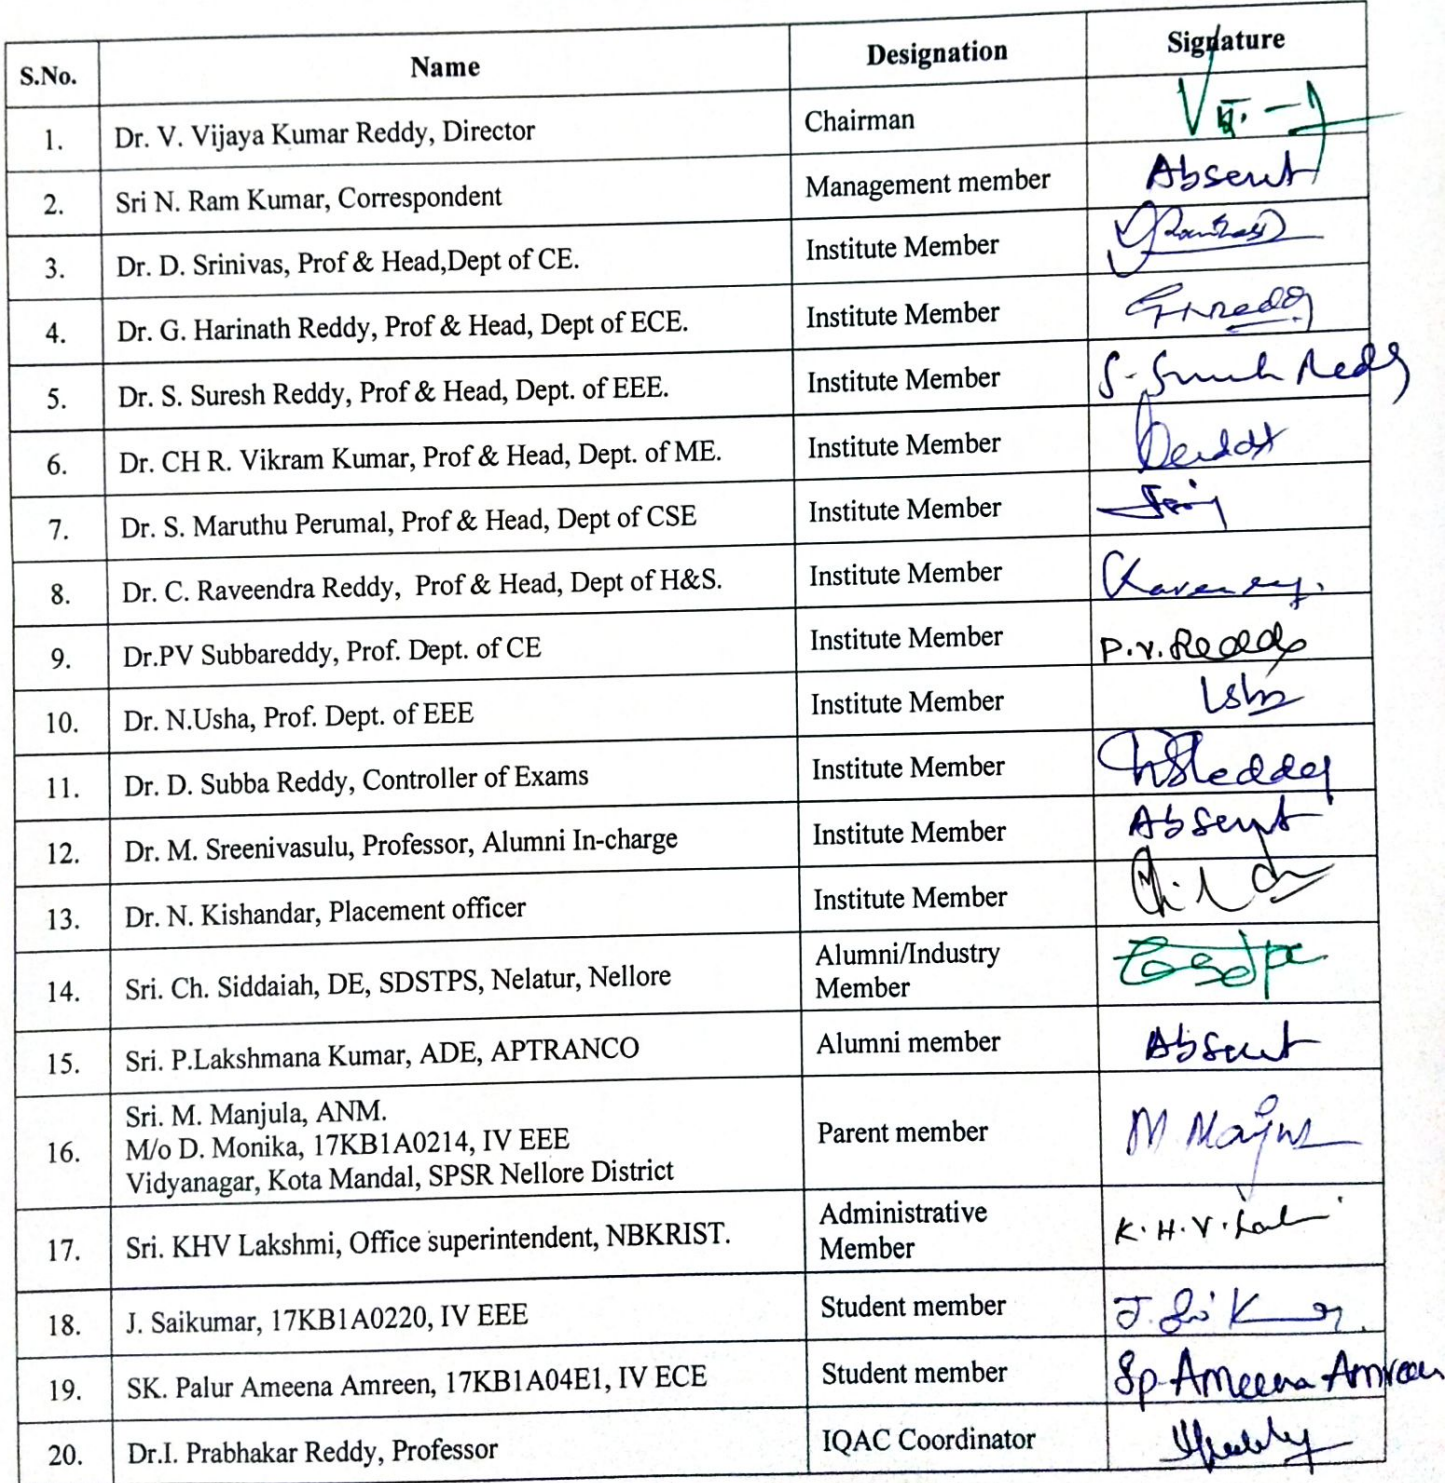 S.No. Name Designation Signature
1. Dr. V. Vijaya Kumar Reddy, Director Chairman
2. Sri N. Ram Kumar, Correspondent Management member Absent
3. Dr. D. Srinivas, Prof & Head,Dept of CE. Institute Member
4. Dr. G. Harinath Reddy, Prof & Head, Dept of ECE. Institute Member
5. Dr. S. Suresh Reddy, Prof & Head, Dept. of EEE. Institute Member S. Suresh Reddy
6. Dr. CH R. Vikram Kumar, Prof & Head, Dept. of ME. Institute Member
7. Dr. S. Maruthu Perumal, Prof & Head, Dept of CSE Institute Member
8. Dr. C. Raveendra Reddy, Prof & Head, Dept of H&S. Institute Member
9. Dr.PV Subbareddy, Prof. Dept. of CE Institute Member P.V. Reddy
10. Dr. N.Usha, Prof. Dept. of EEE Institute Member
11. Dr. D. Subba Reddy, Controller of Exams Institute Member
12. Dr. M. Sreenivasulu, Professor, Alumni In-charge Institute Member Absent
13. Dr. N. Kishandar, Placement officer Institute Member
14. Sri. Ch. Siddaiah, DE, SDSTPS, Nelatur, Nellore Alumni/Industry
Member
15. Sri. P.Lakshmana Kumar, ADE, APTRANCO Alumni member Absent
16. Sri. M. Manjula, ANM.
M/o D. Monika, 17KB1A0214, IV EEE Parent member
Vidyanagar, Kota Mandal, SPSR Nellore District
17. Sri. KHV Lakshmi, Office superintendent, NBKRIST. Administrative
Member K.H.V.
18. J. Saikumar, 17KB1A0220, IV EEE Student member
19. SK. Palur Ameena Amreen, 17KB1A04E1, IV ECE Student member Sp. Ameena Amreen
20. Dr.I. Prabhakar Reddy, Professor IQAC Coordinator